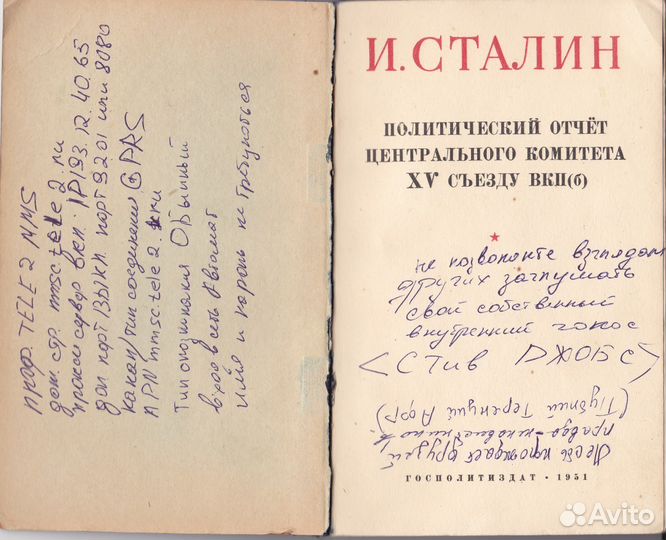 проф. TELE2 MMS
дом. стр. mmsc.tele2.ru
прокси сервер вкл. IP193.12.40.65
доп порт выкл. порт 9201 или 8080
канал/тип соединения GPRS
APN mmsc.tele2.ru
Тип опознавания Обычный
вход в сеть Автомат
имя и пароль не требуються
И. СТАЛИН
ПОЛИТИЧЕСКИЙ ОТЧЁТ
ЦЕНТРАЛЬНОГО КОМИТЕТА
XV СЪЕЗДУ ВКП(б)
не позволяйте взглядам
других заглушать
свой собственный
внутренний голос
<СТИВ ДЖОБС>
Лесть порождает друзей
правда-ненавистников.
(Публий Теренций Афр)
ГОСПОЛИТИЗДАТ • 1951
Avito